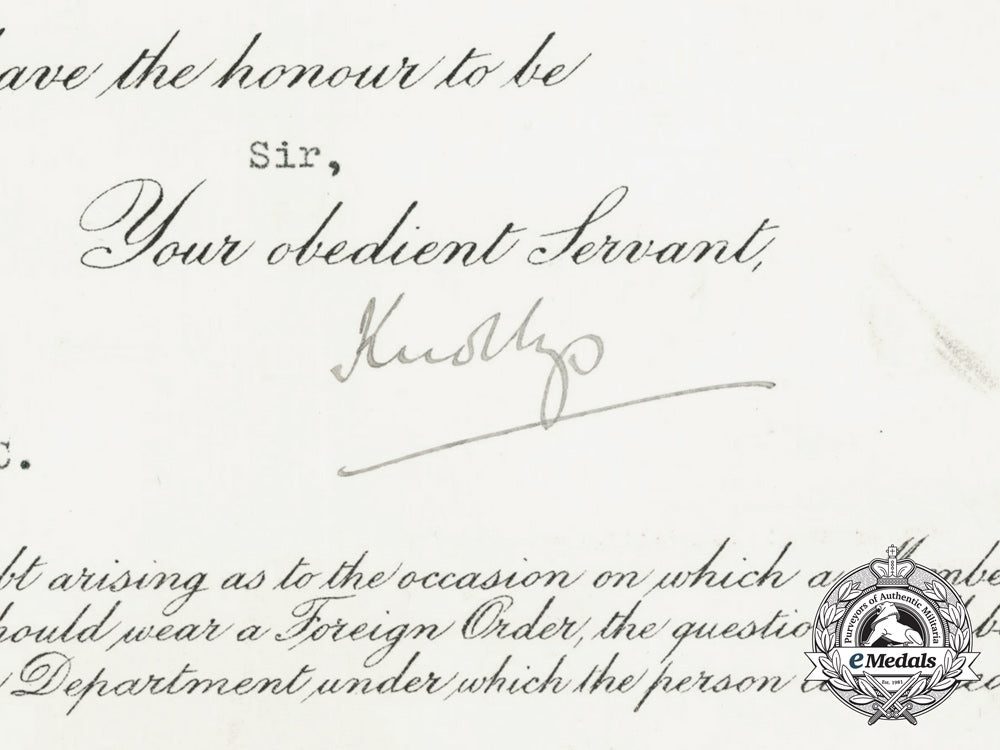 ave the honour to be
Sir,
Your obedient Servant,
Knollys
c.
bt arising as to the occasion on which a
hould wear a Foreign Order, the questio
Department under which the person
Purveyors of Authentic Militaria
eMedals
Est. 1981